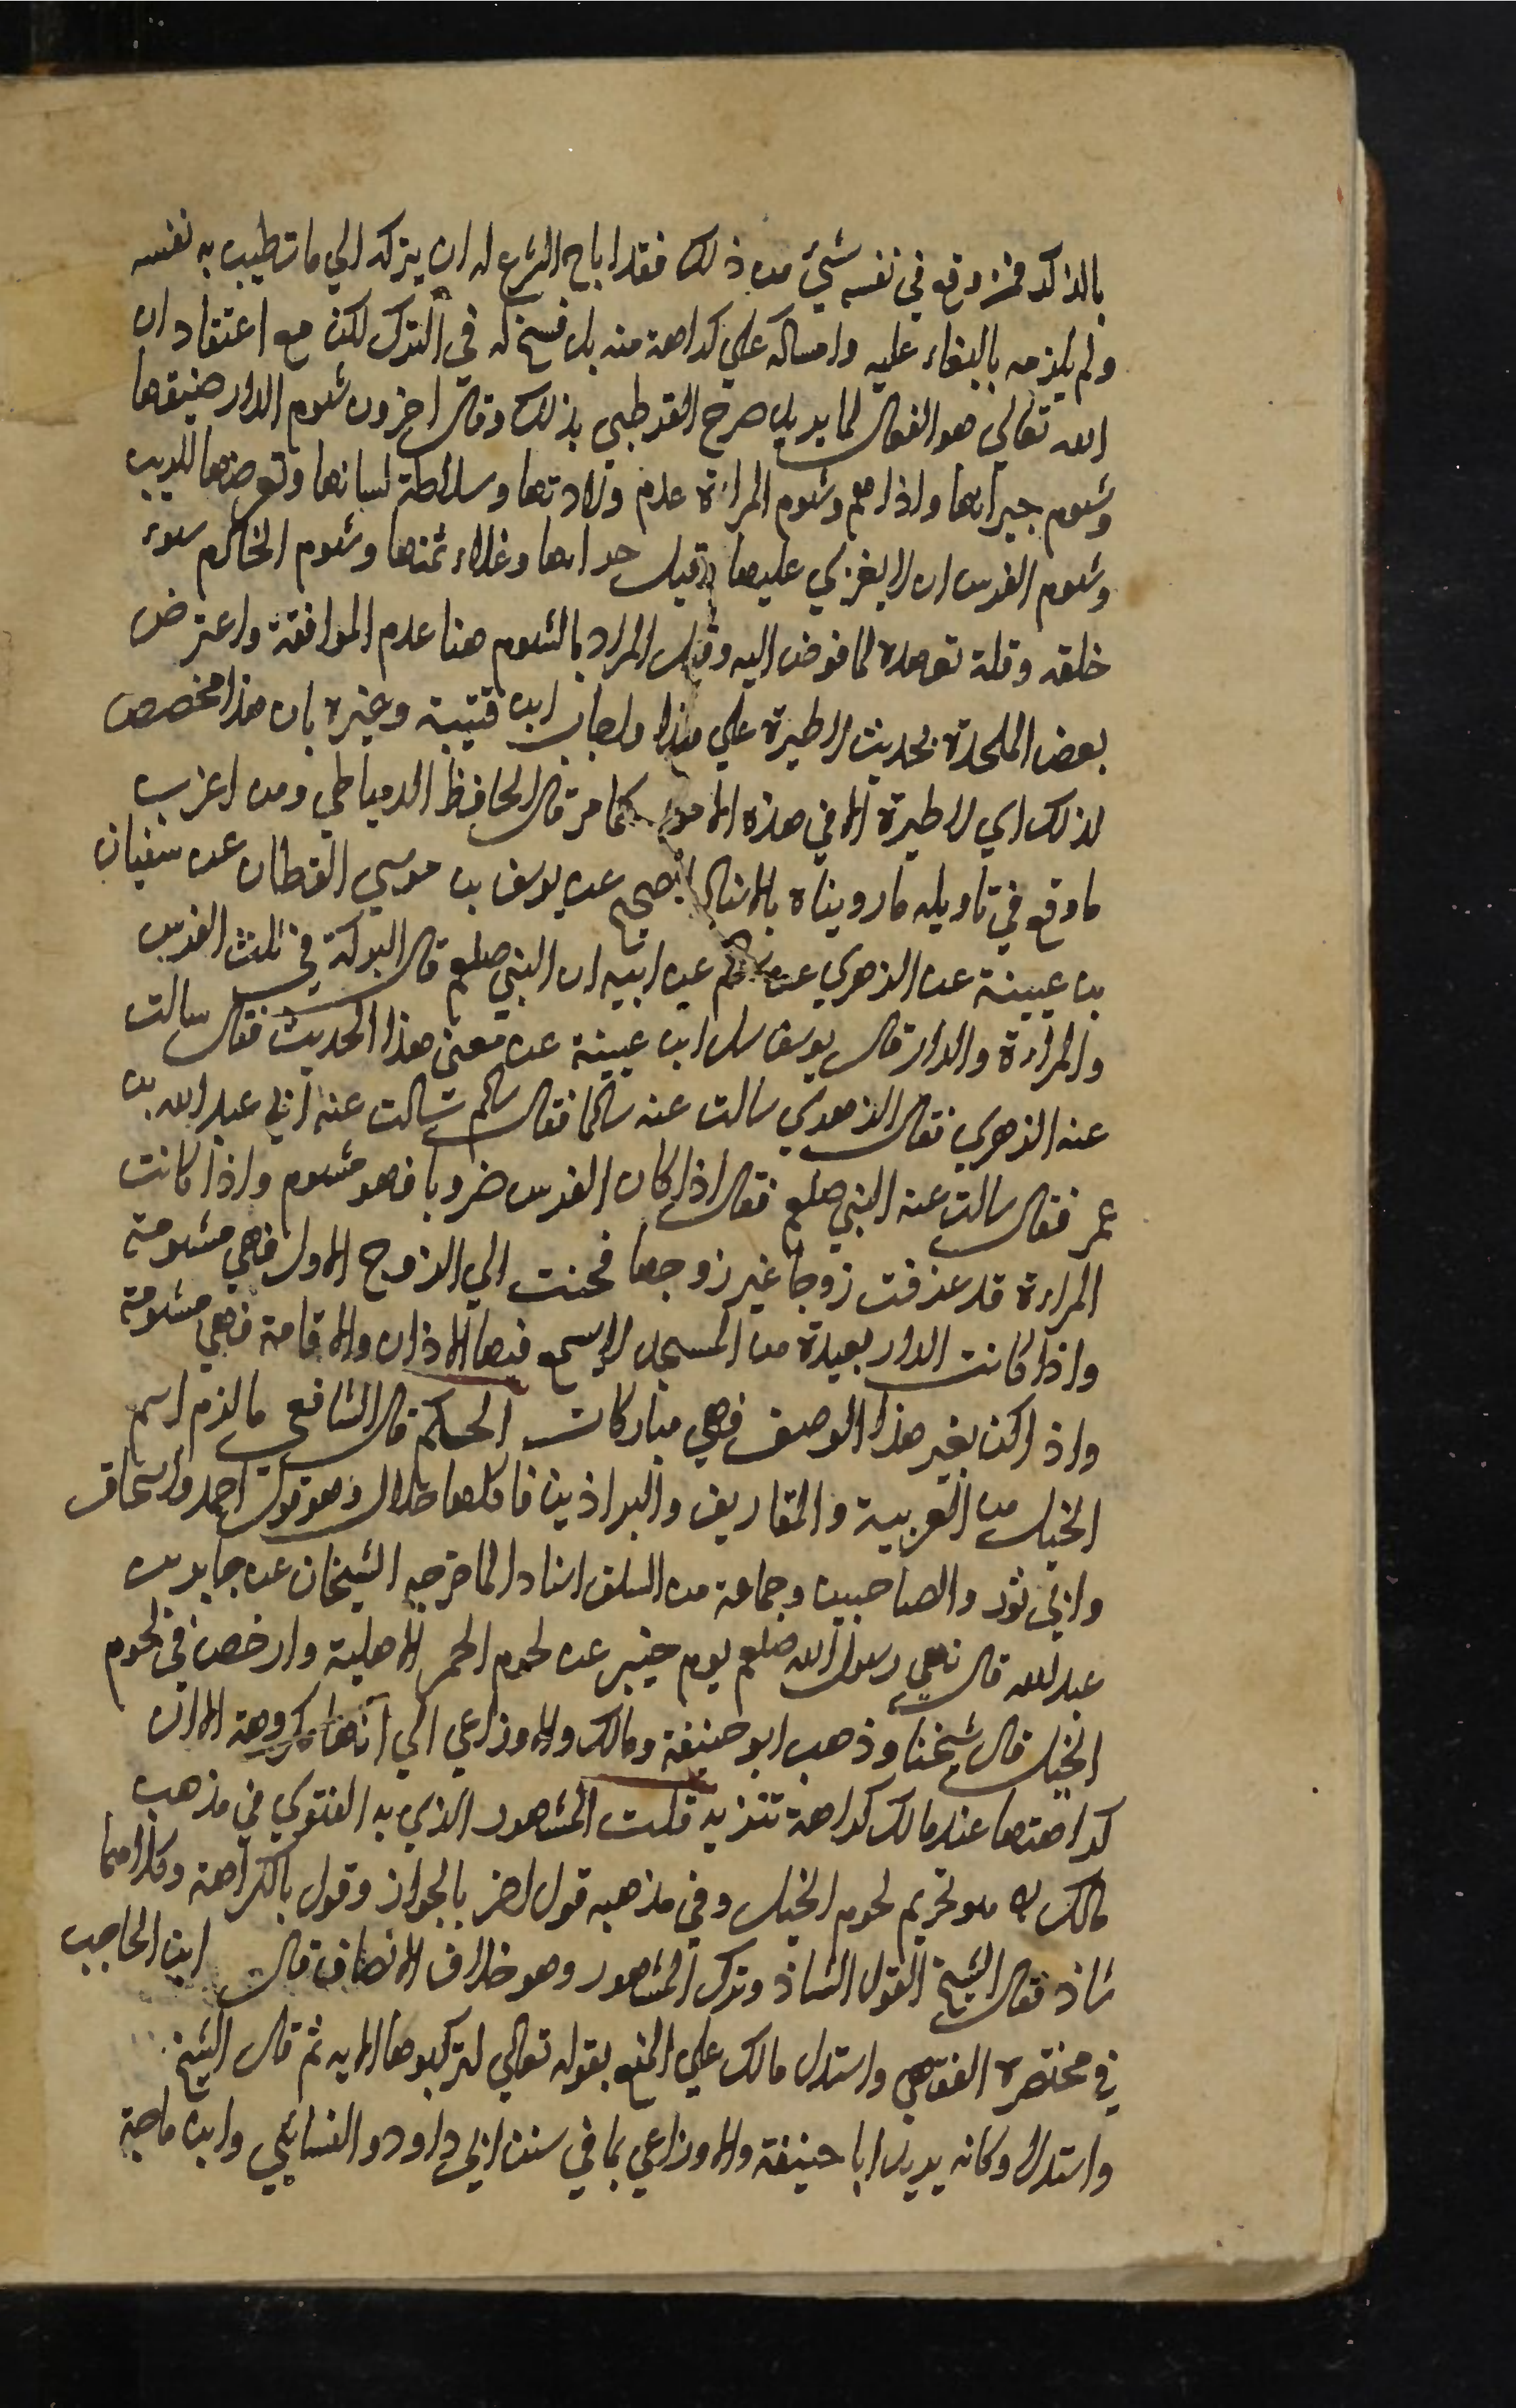 بالذكر فمن وقع في نفسه شيئ من ذلك فقد اباح الشرع له ان يتركه الي ما تطيب به نفسه
ولم يلزمه بالبقاء عليه وامساكه علي كراهة منه بل فسخ له في الترك لكن مع اعتقاد ان
الله تعالي هو الفعال لما يريد صرح القرطبي بذلك وقال اخرون شوم الدار ضيقها
وشوم جيرانها واذاهم وشوم المراة عدم ولادتها وسلاطة لسانها وتعرضها للريب
وشوم الفرس ان لا يغزي عليها وقيل حرانها وغلاء ثمنها وشوم الخادم سوء
خلقه وقلة تعهده لما فوض اليه وقيل المراد بالشوم هنا عدم الموافقة واعترض
بعض الملحدة بحديث لا طيرة علي هذا واجاب ابن قتيبة وغيره بان هذا مخصص
لذلك اي لا طيرة الا في هذه الامور كما مر قال الحافظ الدمياطي ومن اغرب
ما وقع في تاويله ما رويناه بالاسناد الصحيح عن يوسف بن موسي القطان عن سفيان
بن عيينة عن الزهري عن سالم عن ابيه ان النبي صلعم قال البركة في ثلث الفرس
والمراة والدار قال يوسف سال ابن عيينة عن معني هذا الحديث فقال سالت
عنه الزهري فقال الزهري سالت عنه سالما فقال سالم سالت عنه ابي عبد الله بن
عمر فقال سالت عنه النبي صلعم فقال اذا كان الفرس ضروبا فهو مشوم واذا كانت
المراة قد عرفت زوجا غير زوجها فحنت الي الزوج الاول فهي مشومة
واذا كانت الدار بعيدة من المسجد لا يسمع فيها الاذان والاقامة فهي مشومة
واذا كن بغير هذا الوصف فهي مباركات الحكم قال الشافعي ما لزم اسم
الخيل من العربية والمقاريف والبراذين فاكلها حلال وهو قول احمد واسحاق
وابي ثور والصاحبين وجماعة من السلف اسنادا لما خرجه الشيخان عن جابر بن
عبد الله قال نهي رسول الله صلعم يوم خيبر عن لحوم الحمر الاهلية وارخص في لحوم
الخيل قال شيخنا وذهب ابو حنيفة ومالك والاوزاعي الي انها مكروهة الا ان
كراهتها عند مالك كراهة تنزيه قلت المشهور الذي به الفتوي في مذهب
مالك هو تحريم لحوم الخيل وفي مذهبه قول اخر بالجواز وقول بالكراهة وكلاهما
شاذ فقال الشيخ القول الشاذ وترك المشهور وهو خلاف الانصاف قال ابن الحاجب
في مختصره الفقهي واستدل مالك علي المنع بقوله تعالي لتركبوها الايه ثم قال الشيخ
واستدل وكانه يريد ابا حنيفة والاوزاعي بما في سنن ابي داود والنسائي وابن ماجة